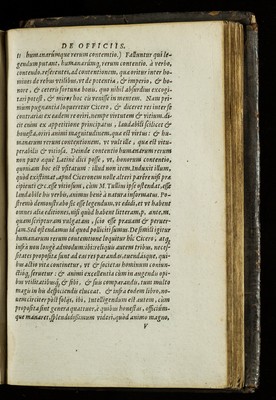 DE OFFICIIS.
ti humanarúmque rerum contemtio.) Falluntur qui le-
gendum putant, humanarúmq; rerum contentio. à verbo,
contendo. referentes, ad contentionem, qua oritur inter ho-
mines de rebus vtilibus, vt de potentia, & imperio, & ho-
nore, & cæteris fortunæ bonis. quo nihil absurdius excogi-
tari potest, & miror hoc eis venisse in mentem. Nam pri-
mùm pugnantia loqueretur Cicero, & diceret res inter se
contrarias ex eadem re oriri, nempe virtutem & vitium. di-
cit enim ex appetitione principatus, laudabili scilicet &
honesta, oriri animi magnitudinem. quæ est virtus: & hu-
manarum rerum contentionem, vt vult ille, quæ est vitu-
perabilis & vitiosa. Deinde contentio humanarum rerum
non puto que Latinè dici posse, vt, honorum contentio,
quoniam hoc est vsitatum: illud non item. Induxit illum,
quòd existimat, apud Ciceronem nolle alteri parêre nisi præ
cipienti & c. esse vitiosum, cùm M. Tullius ipse ostendat, esse
laudabile his verbis, animus benè à natura informatus. Po-
stremò demonstrabo sic esse legendum. vt edidi, et vt habent
omnes aliæ editiones, nisi quòd habent litteram, p. ante m.
quam scripturam vulgatam, scio esse prauam & peruer-
sam. Sed ostendamus id quod polliciti sumus. De simili igitur
humanarum rerum contemtione loquitur hîc Cicero, atq;
infrà non longè admodum. ibi: reliquis autem tribus, neces-
sitates propositæ sunt ad eas res parandas. tuendásque, qui-
bus actio vitæ continetur, vt & societas hominum coniun-
ctióq; seruetur: & animi excellentia cùm in augendis opi-
bus vtilitatibusq;, & sibi, & suis comparandis, tum multo
magis in his despiciendis eluceat. & infrà eodem libro, no-
uem circiter pòst folijs, ibi, Intelligendum est autem, cùm
proposita sint genera quattuor, è quibus honestas, officiúm-
que manaret, splendidissimum videri, quòd animo magno,
V